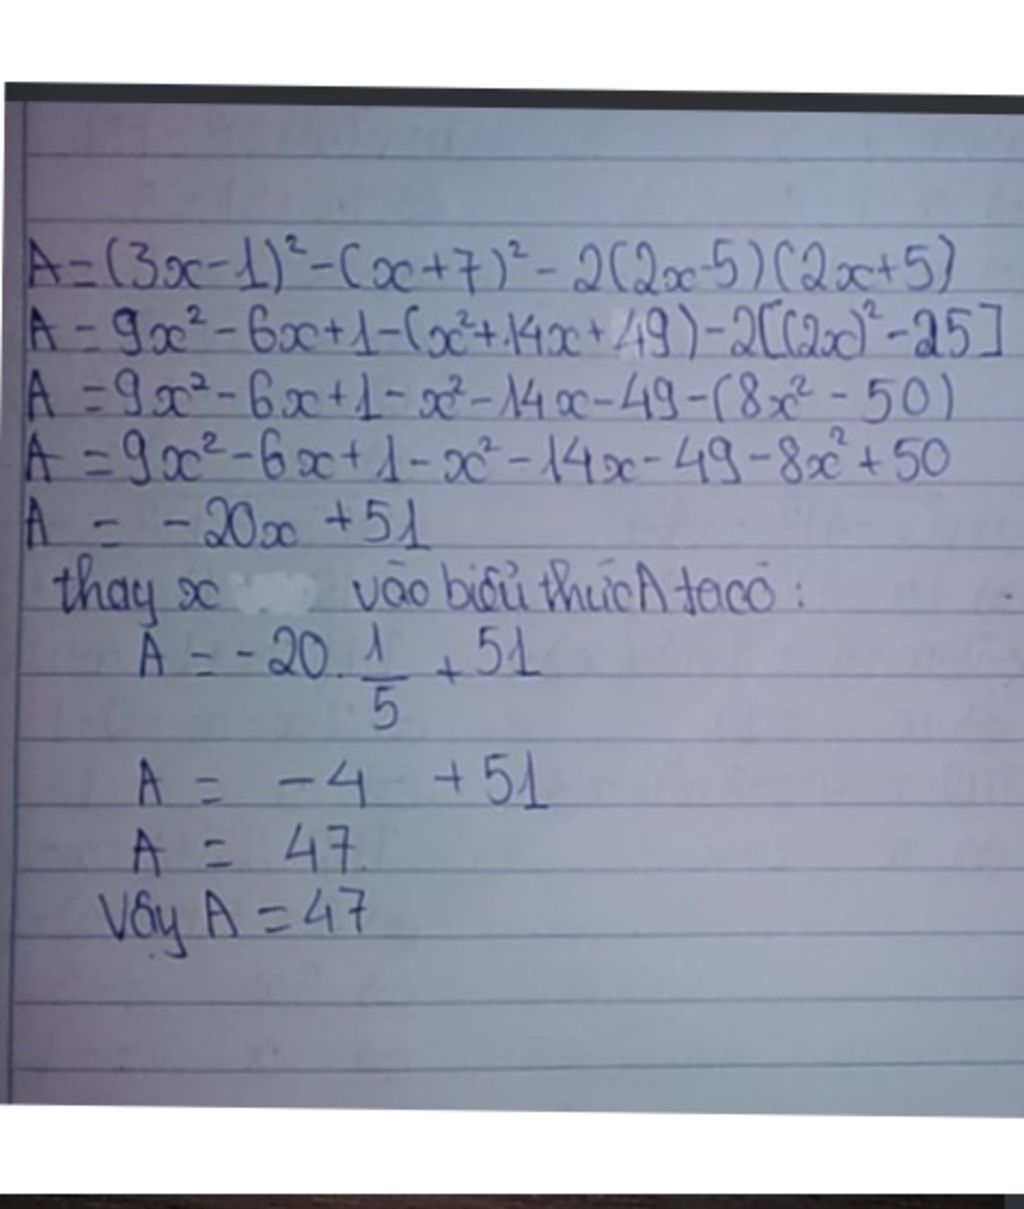 A = (3x-1)² - (x+7)² - 2(2x-5)(2x+5)
A = 9x² - 6x + 1 - (x² + 14x + 49) - 2[(2x)² - 25]
A = 9x² - 6x + 1 - x² - 14x - 49 - (8x² - 50)
A = 9x² - 6x + 1 - x² - 14x - 49 - 8x² + 50
A = -20x + 51
thay x vào biểu thức A ta có :
A = -20. 1/5 + 51
A = -4 + 51
A = 47.
Vậy A = 47